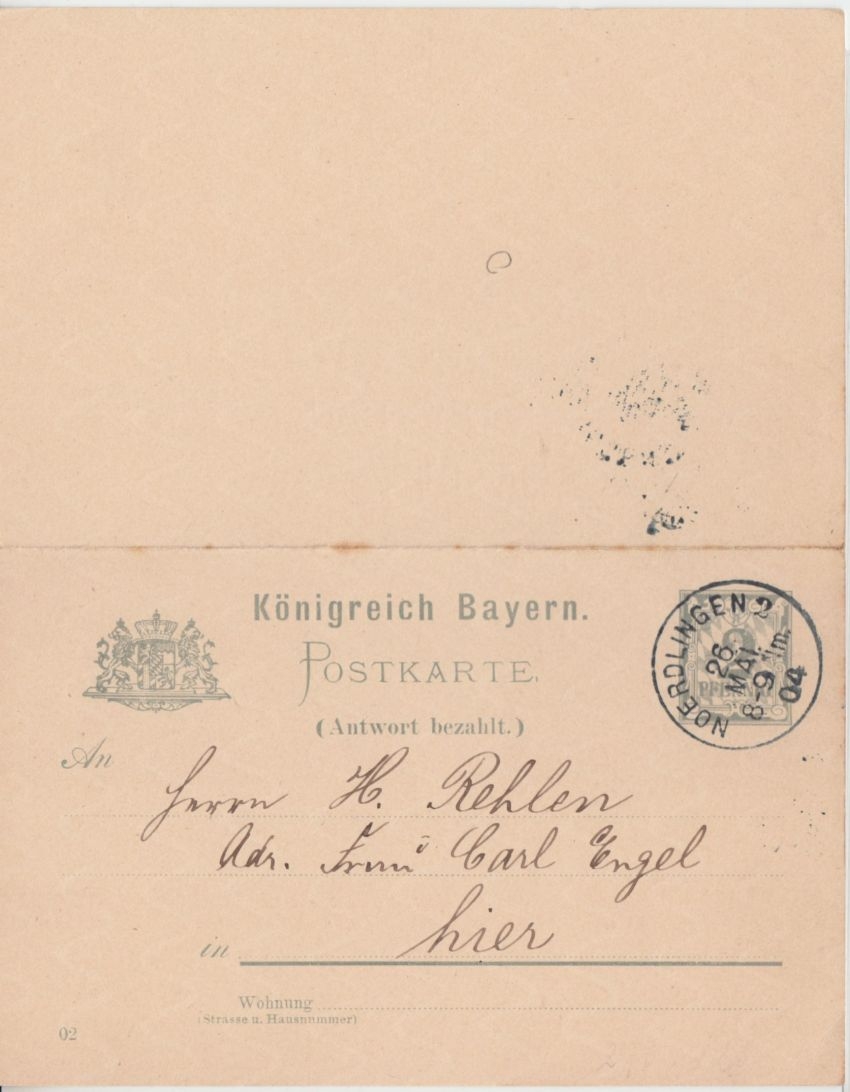 Königreich Bayern.
POSTKARTE.
(Antwort bezahlt.)
NOERDLINGEN 2
26.
MAI.
8-9 Vm.
04
2
PFENNIG
An
Herrn H. Rehlen
Adr. Frau Carl Engel
in hier
Wohnung
(Strasse u. Hausnummer)
02